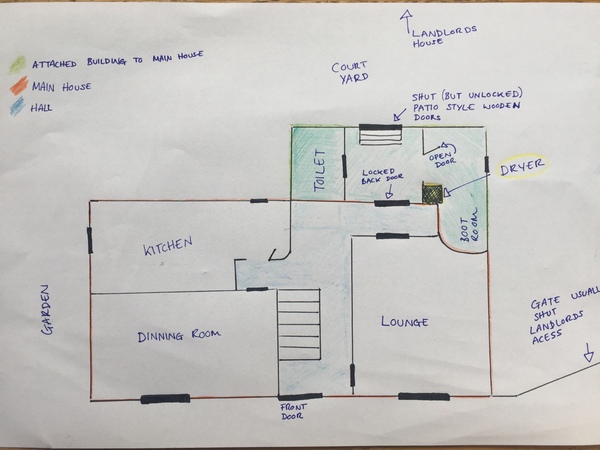 ATTACHED BUILDING TO MAIN HOUSE
MAIN HOUSE
HALL
LANDLORDS
HOUSE
COURT
YARD
SHUT (BUT UNLOCKED)
PATIO STYLE WOODEN
DOORS
TOILET
LOCKED
BACK DOOR
OPEN
DOOR
DRYER
BOOT
ROOM
KITCHEN
GARDEN
DINNING ROOM
LOUNGE
FRONT
DOOR
GATE USUALL
SHUT
LANDLORDS
ACESS